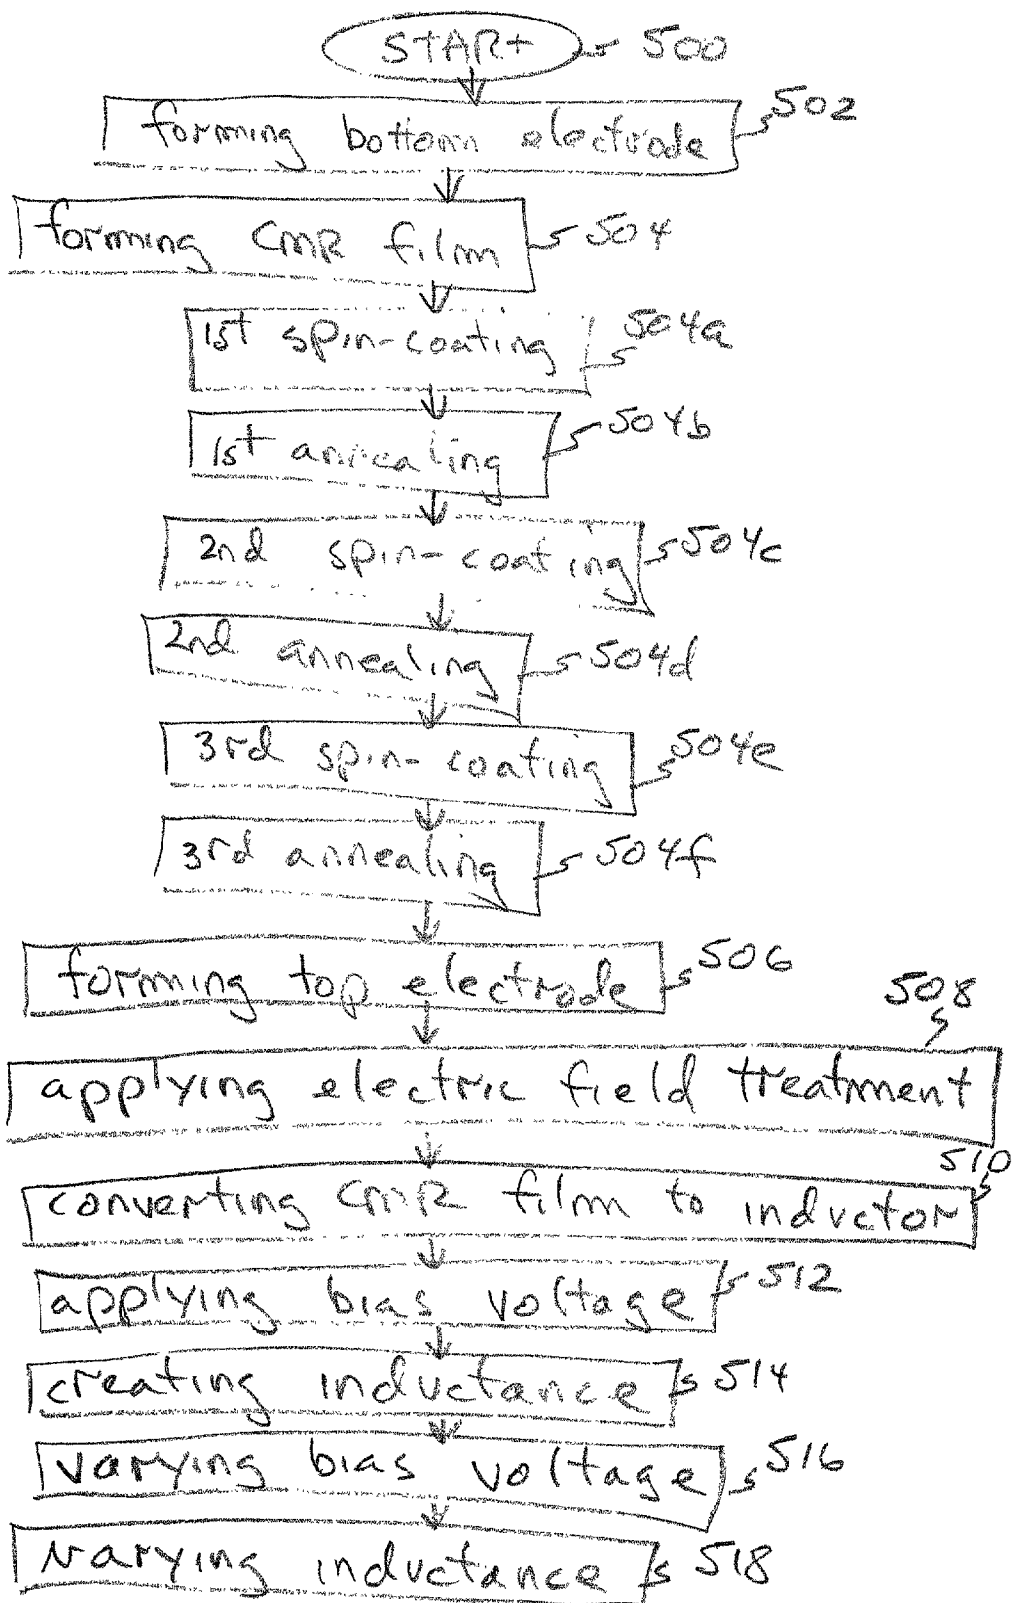 START 500
502
forming bottom electrode
forming CMR film 504
1st spin-coating 504a
1st annealing 504b
2nd spin-coating 504c
2nd annealing 504d
3rd spin-coating 504e
3rd annealing 504f
forming top electrode 506
508
applying electric field treatment
510
converting CMR film to inductor
applying bias voltage 512
creating inductance 514
varying bias voltage 516
varying inductance 518